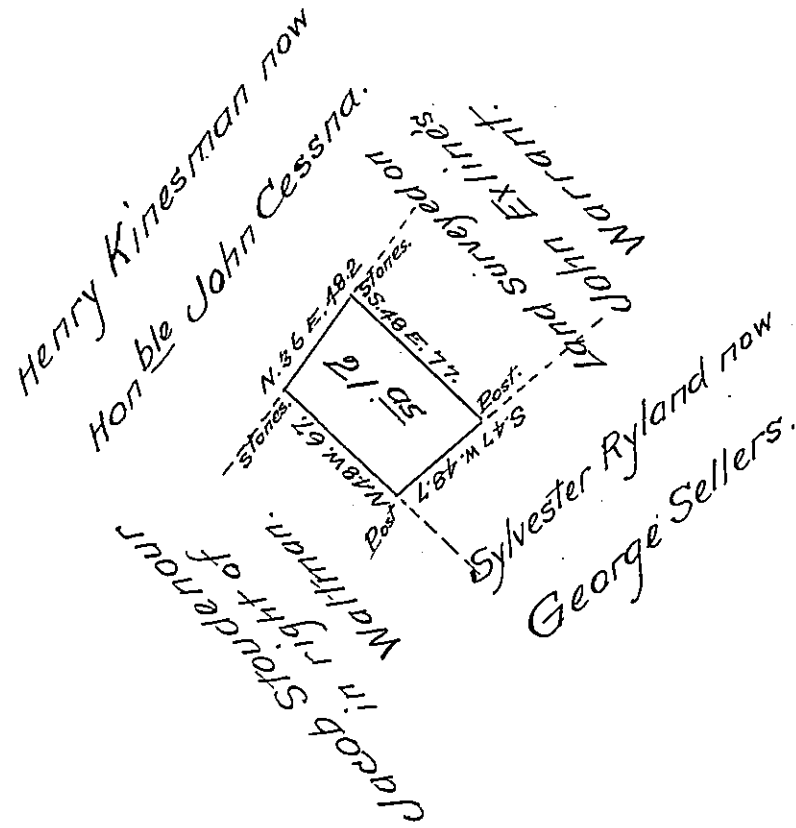 Henry Kinesman now
Honble John Cessna.
Land surveyed on
John Exline's
Warrant.
N.36 E. 48.2
Stones.
S.48 E. 77.
21 as
Post.
Stones.
N48W.67.
S.47 W.48.7
Post
Sylvester Ryland now
George Sellers.
Jacob Stoudenour
in right of
Waltman.